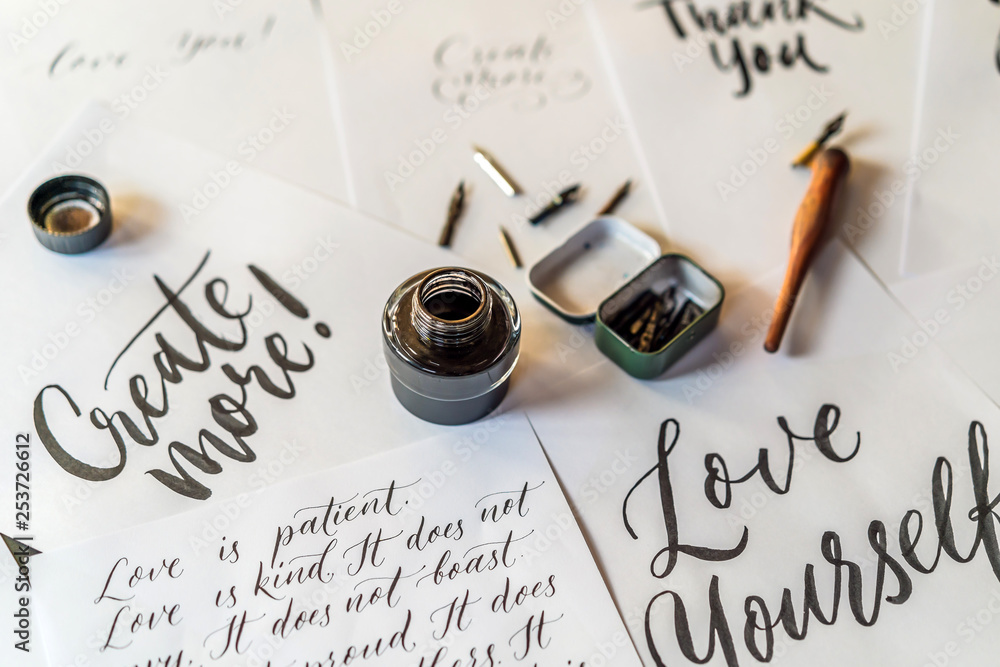 Love You!
Create
Share
Thank
You
Create
more!
Love is patient.
Love is kind. It does not
envy. It does not boast.
proud. It does
It
is
Love
Yourself
Adobe Stock | #253726612